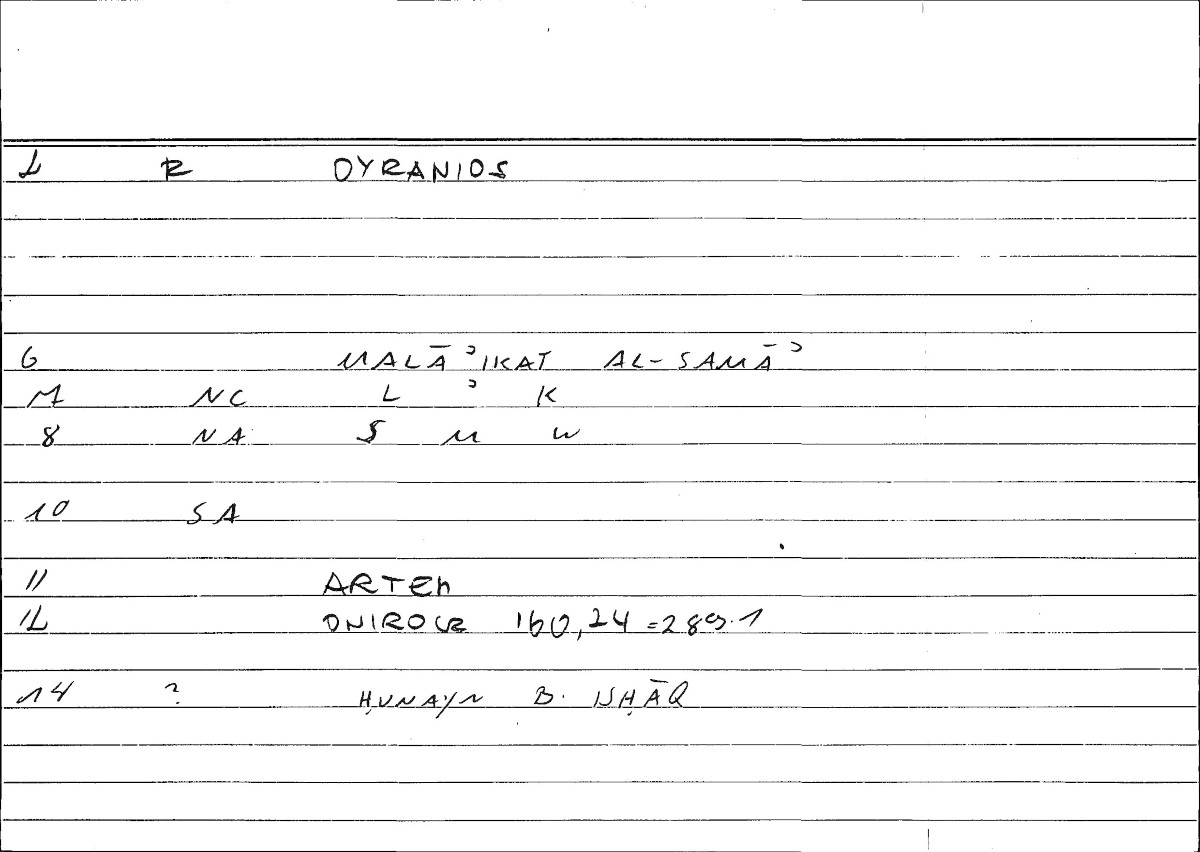 L R OYRANIOS
6 MALĀʾIKAT AL-SAMĀʾ
7 NC L ʾ K
8 NA S M W
10 SA
11 ARTEM
12 ONIROCR 160,24 = 289.1
14 ? ḤUNAYN B. ISḤĀQ